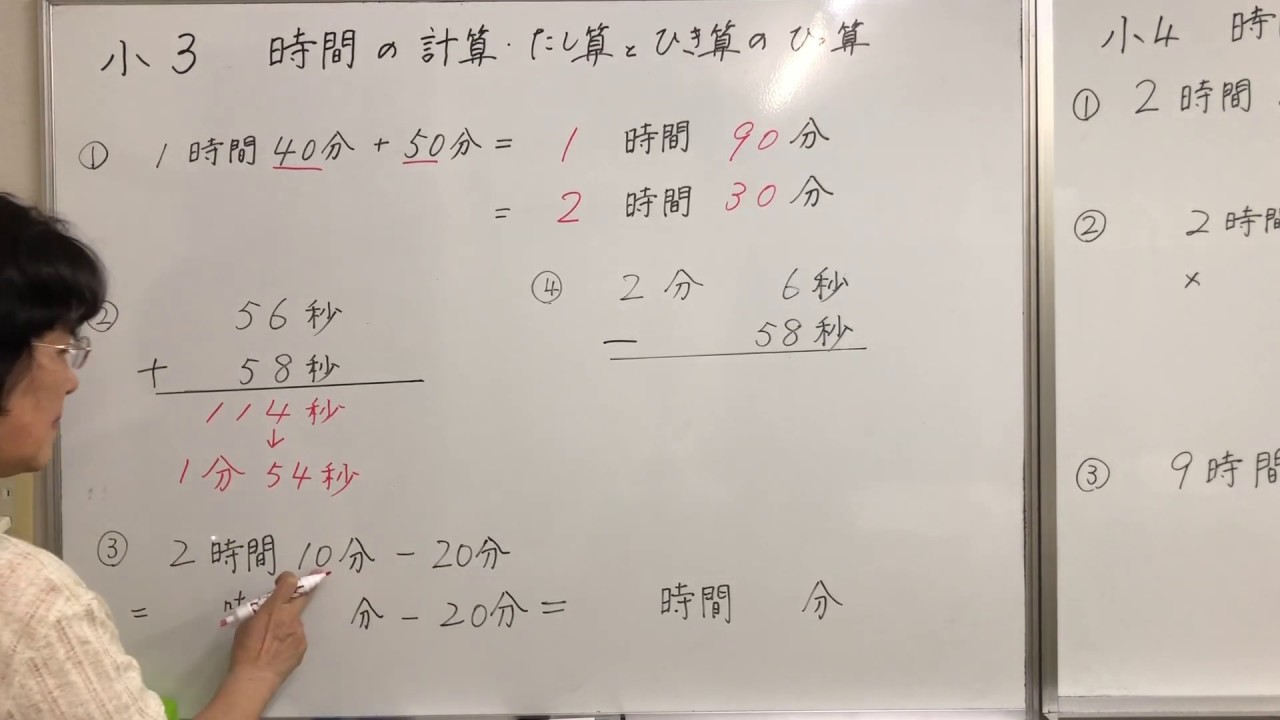 小3 時間の計算・たし算とひき算のひっ算
① 1時間40分+50分= 1 時間 90分
= 2 時間 30分
② 56秒
+ 58秒
114秒
↓
1分54秒
④ 2分 6秒
− 58秒
③ 2時間10分−20分
= 分−20分= 時間 分
小4 時
① 2時間
② 2時間
×
③ 9時間